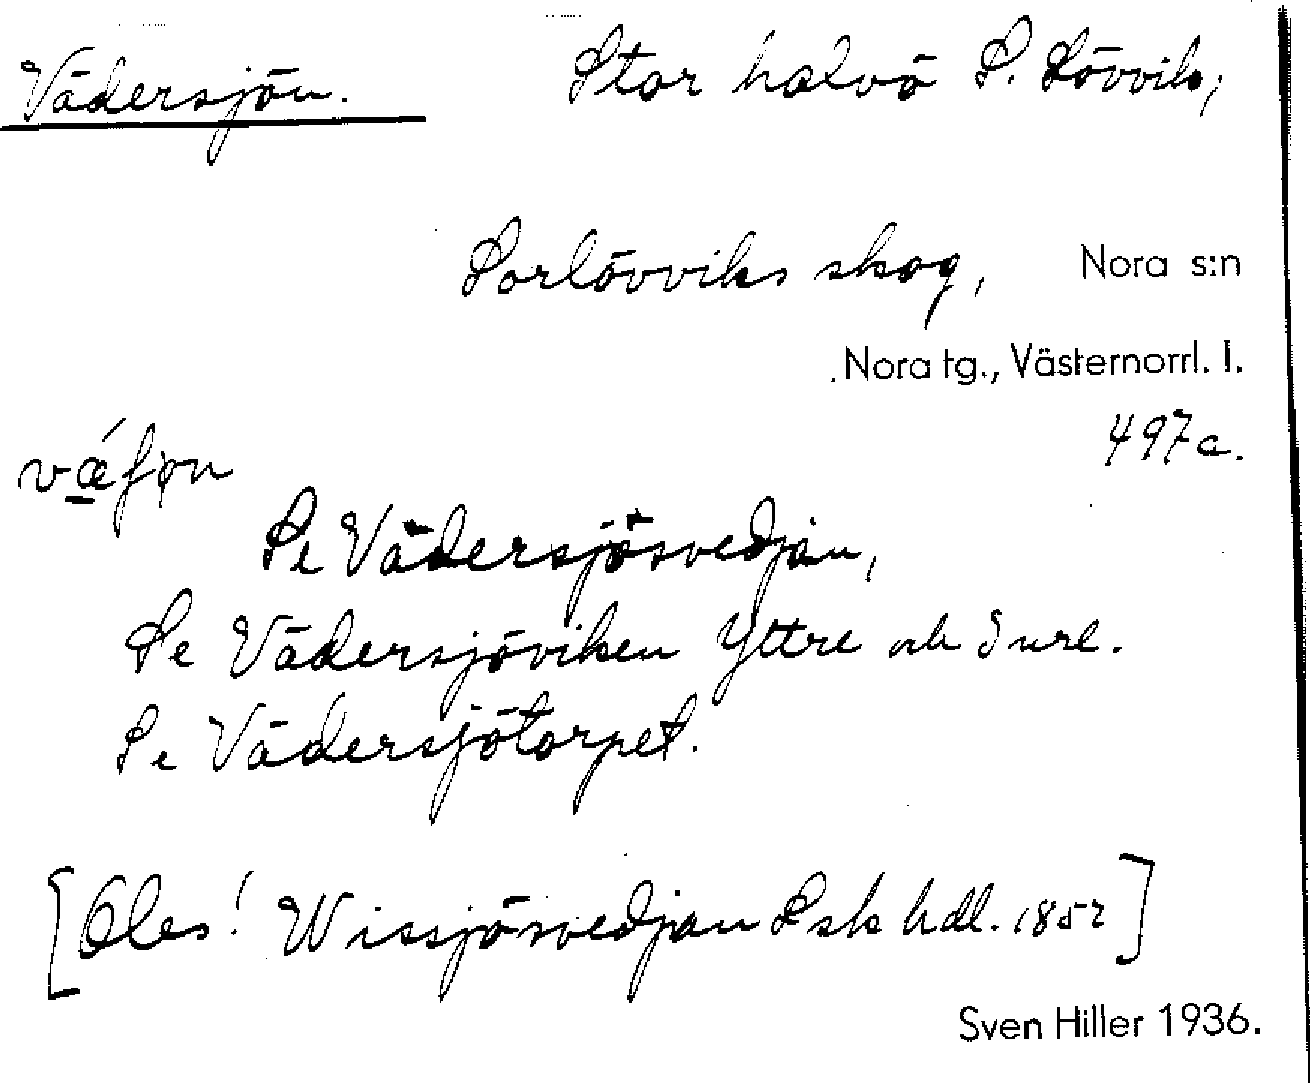 Vädersjön.
Stor halvö S. Lövvik,
Sörlövviks skog, Nora s:n
Nora tg., Västernorrl. l.
497c.
Se Vädersjösvedjan,
Se Vädersjöviken Yttre och Inre.
Se Vädersjötorpet.
[Obs! Wissjösvedjan Lsk hdl. 1852]
Sven Hiller 1936.